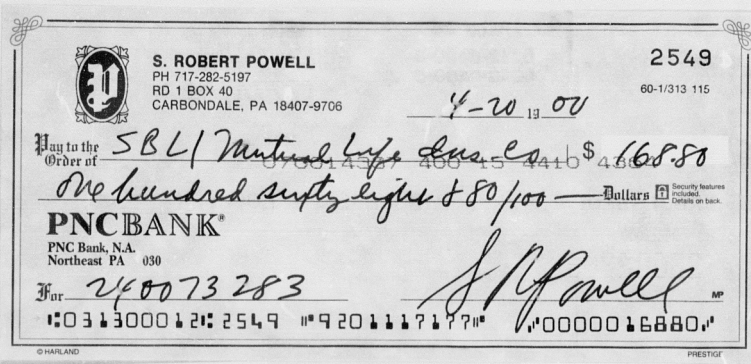 S. ROBERT POWELL
PH 717-282-5197
RD 1 BOX 40
CARBONDALE, PA 18407-9706
2549
60-1/313 115
4-20 19 00
Pay to the Order of SBLI Mutual Life Ins. Co. $ 168.80
One hundred sixty eight & 80/100 Dollars
Security features included. Details on back.
PNCBANK®
PNC Bank, N.A.
Northeast PA 030
For 240073283 S R Powell MP
⑆031300012⑆ 2549 ⑈9201117177⑈ ⑈0000016880⑈
© HARLAND PRESTIGE